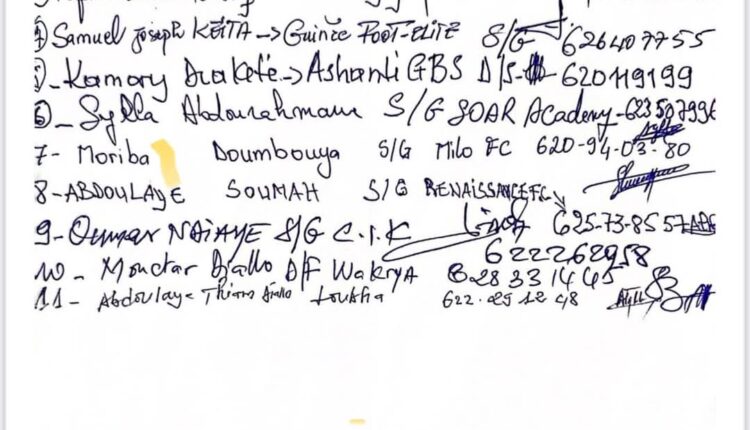 Samuel Joseph KEITA -> Guinée FOOT-ELITE S/G 626407755
Kamory Diakité -> Ashanti GBS D/S- 620119199
6- Sylla Abdourahmane S/G SOAR Academy-623507996
7- Moriba Doumbouya S/G Milo FC 620-94-03-80
8- ABDOULAYE SOUMAH S/G RENAISSANCE FC
9- Oumar NDIAYE S/G C.I.K 625-73-8557
622262958
10- Mouctar Djallo D/F Wakrya 628331445
11- Abdoulaye Thiam Diallo Loubha 622.25 12 48